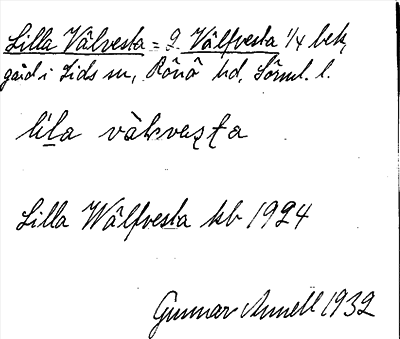 Lilla Vålvesta = L. Vålfvesta 1/4 bek.
gård i Lids sn, Rönö hd, Sörml. l.
lila vàlvesta
Lilla Wålfvesta kb 1924
Gunnar Annell 1932